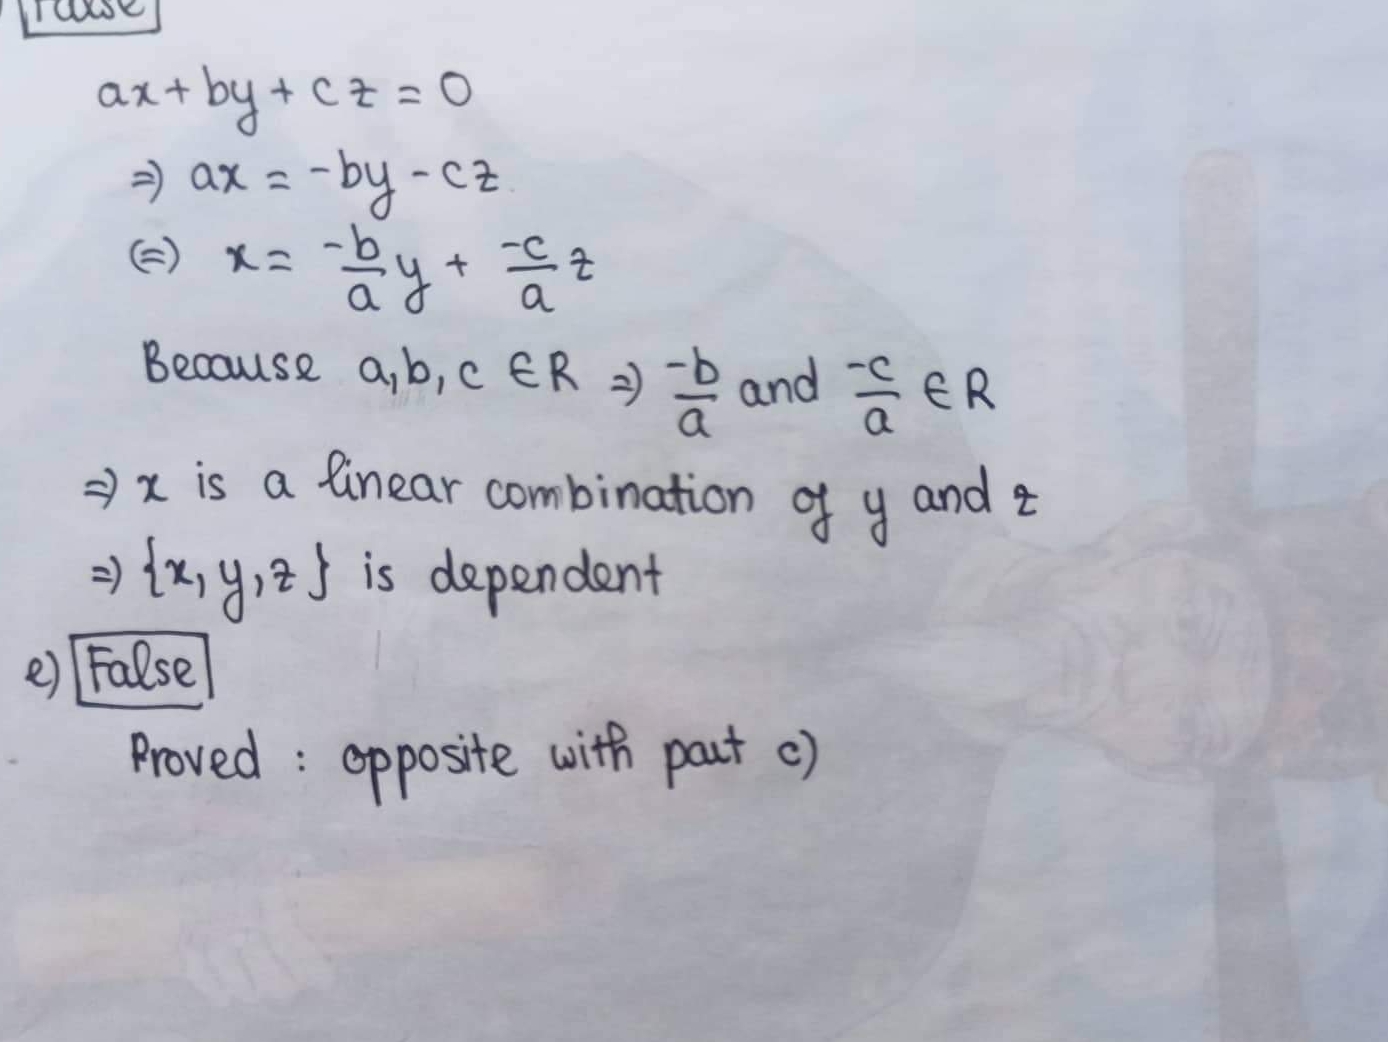 False
ax + by + cz = 0
⇒ ax = -by - cz
(=) x = -b/a y + -c/a z
Because a, b, c ∈ R ⇒ -b/a and -c/a ∈ R
⇒ x is a linear combination of y and z
⇒ {x, y, z} is dependent
e) False
Proved : opposite with part c)